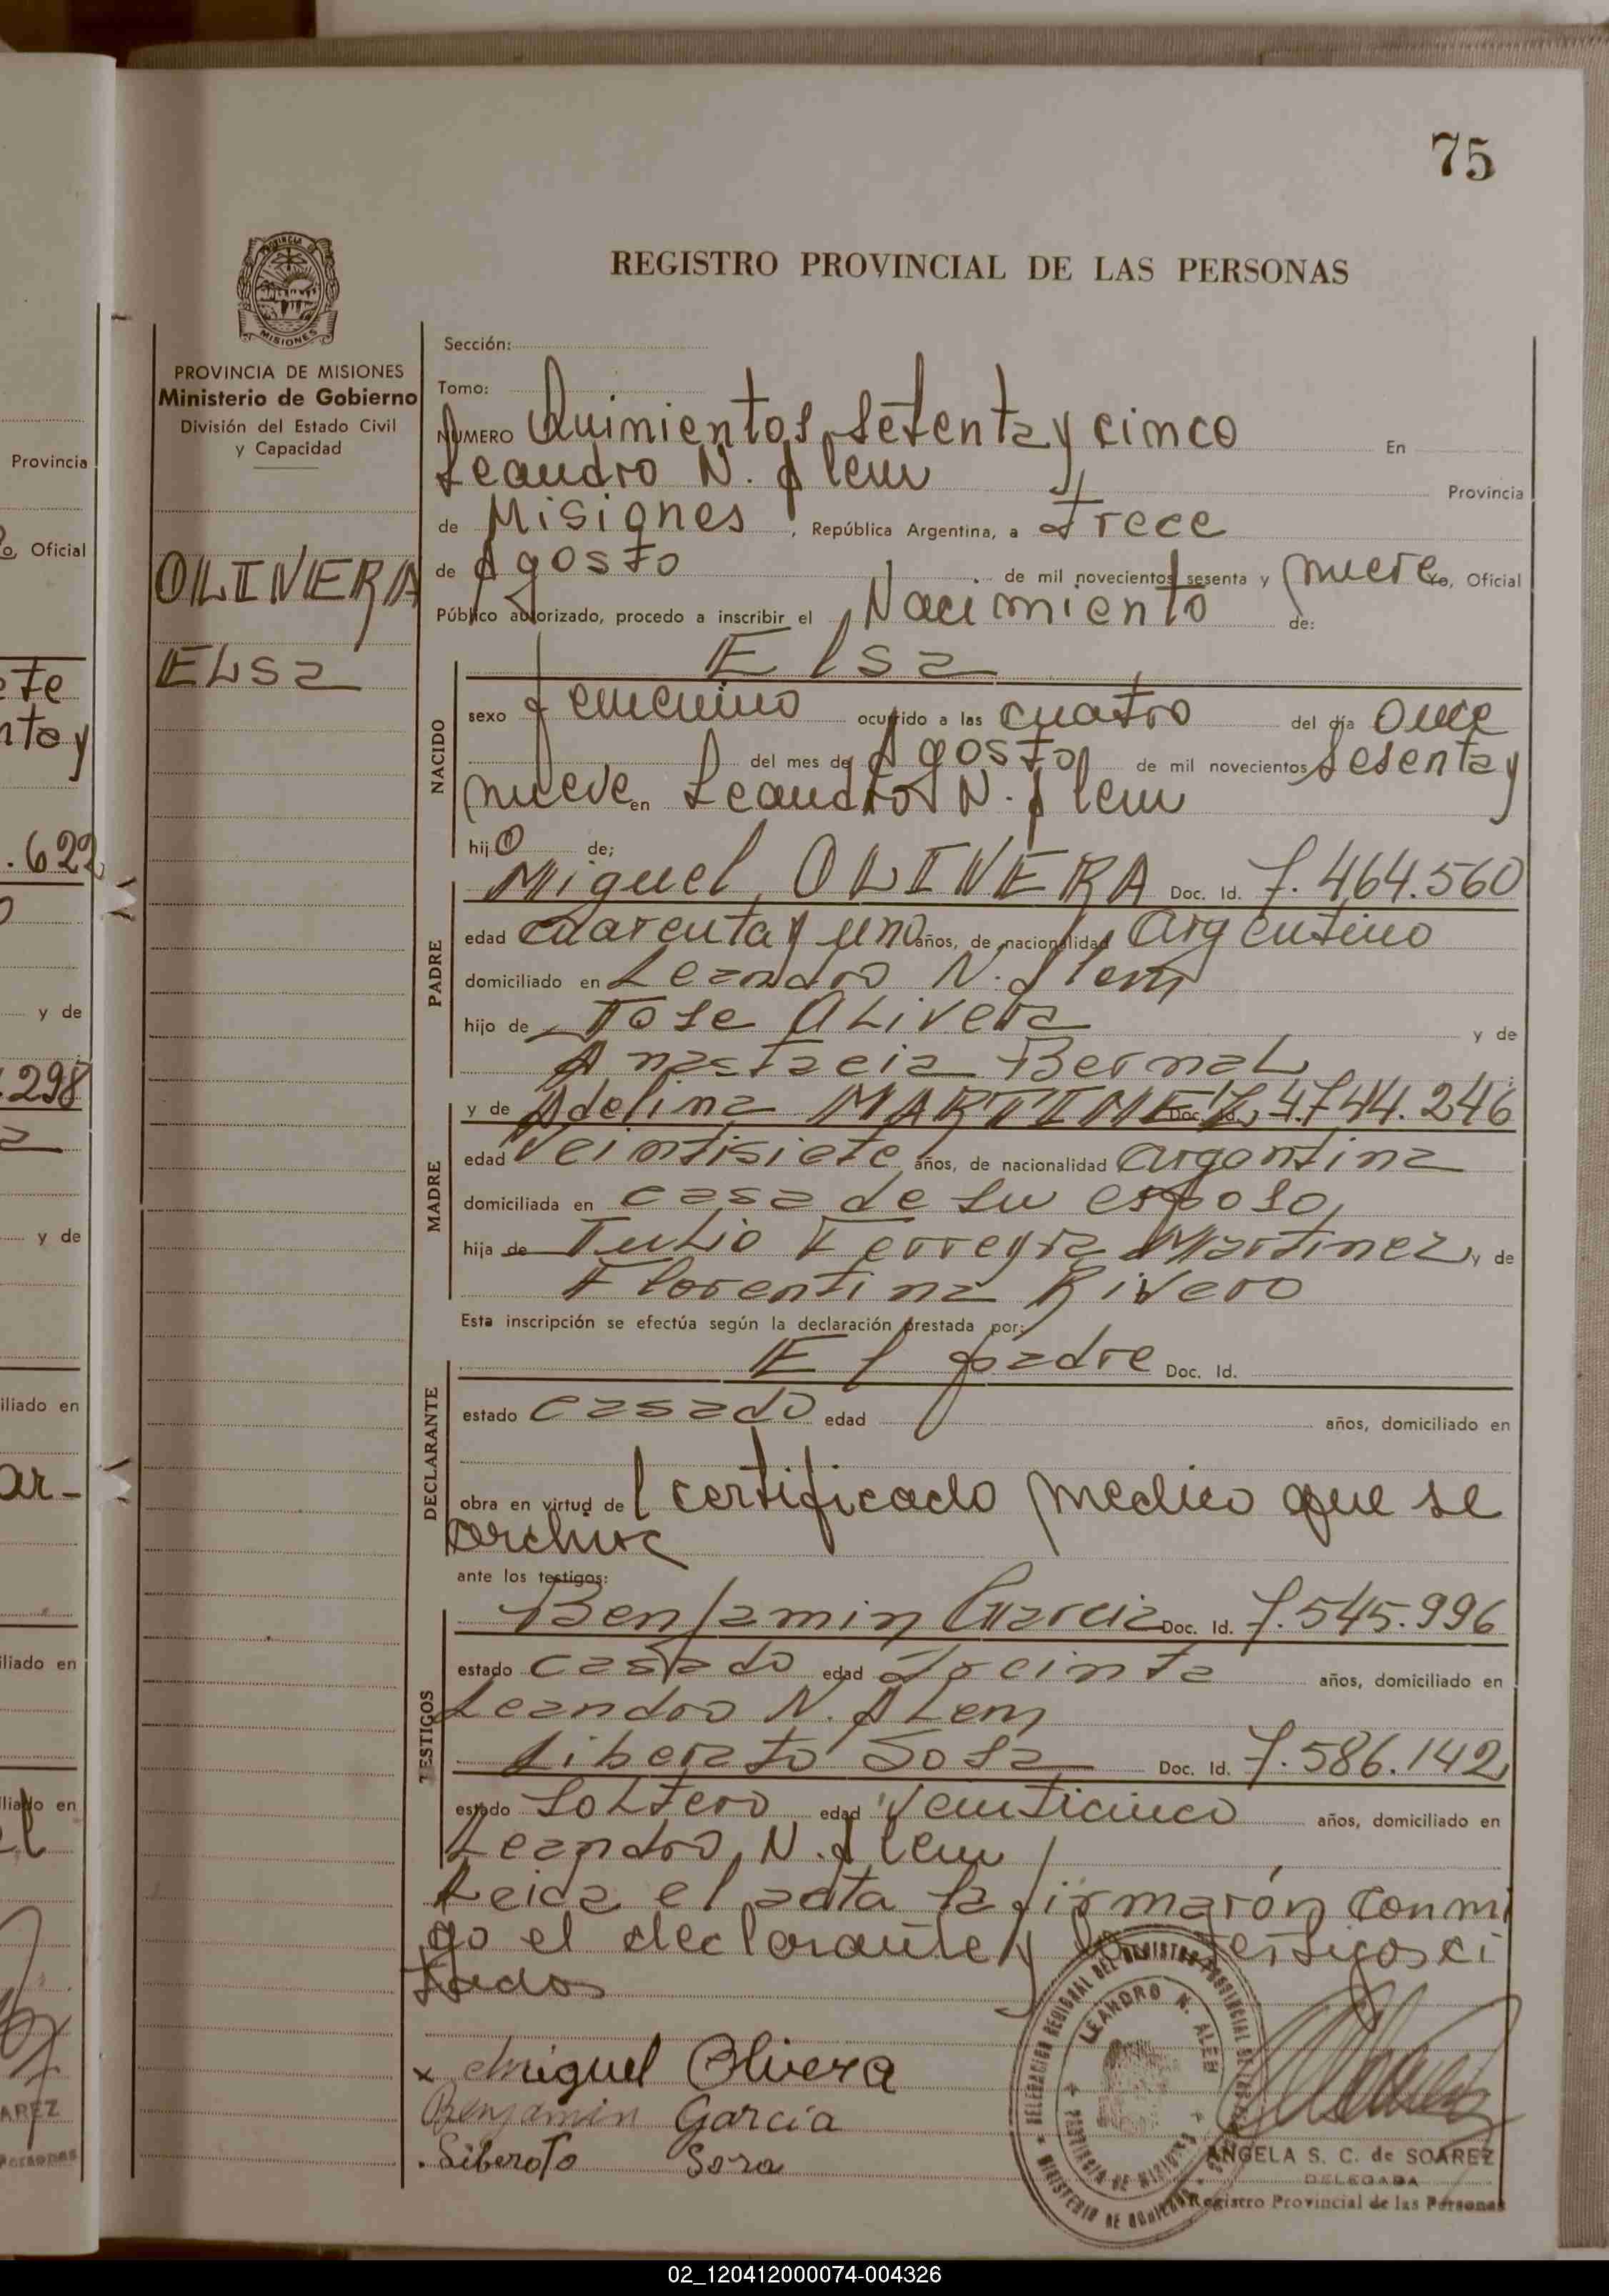 75
REGISTRO PROVINCIAL DE LAS PERSONAS
PROVINCIA DE MISIONES
Ministerio de Gobierno
División del Estado Civil
y Capacidad
OLIVERA
ELsa
Sección:
Tomo:
NUMERO Quinientos setenta y cinco En
Leandro N. Alem Provincia
de Misiones, República Argentina, a trece
de Agosto de mil novecientos sesenta y nueve Yo, Oficial
Público autorizado, procedo a inscribir el Nacimiento de:
Elsa
NACIDO
sexo femenino ocurrido a las cuatro del día once
del mes de Agosto de mil novecientos sesenta y
nueve en Leandro N. Alem
hijo de;
PADRE
Miguel OLIVERA Doc. Id. 7.464.560
edad cuarenta y uno años, de nacionalidad argentino
domiciliado en Leandro N. Alem
hijo de Jose OLivera y de
Anastacia BernaL
MADRE
y de Adelina MARTINEZ Doc. Id. 4.744.246
edad veintisiete años, de nacionalidad argentina
domiciliada en casa de su esposo
hija de JuLio Ferreyra Martinez y de
Florentina Rivero
Esta inscripción se efectúa según la declaración prestada por:
DECLARANTE
El padre Doc. Id.
estado casado edad años, domiciliado en
obra en virtud del certificado medico que se
archiva
ante los testigos:
TESTIGOS
Benjamin Garcia Doc. Id. 7.545.996
estado casado edad treinta años, domiciliado en
Leandro N. ALem
Liberato Sosa Doc. Id. 7.586.142
estado soLtero edad veinticinco años, domiciliado en
Leandro N. Alem
Leida el acta la firmarón conmi
go el declarante y los testigos ci
tados
x Miguel Olivera
Benjamin Garcia
Liberato Sosa
DELEGACION REGIONAL DEL REGISTRO PROVINCIAL DE LAS PERSONAS
LEANDRO N. ALEM
PROVINCIA DE MISIONES
MINISTERIO DE GOBIERNO
ANGELA S. C. de SOAREZ
DELEGADA
Registro Provincial de las Personas
Provincia
Oficial
nta y
.622
y de
.298
y de
iliado en
ar-
iliado en
liado en
AREZ
Personas
02_120412000074-004326